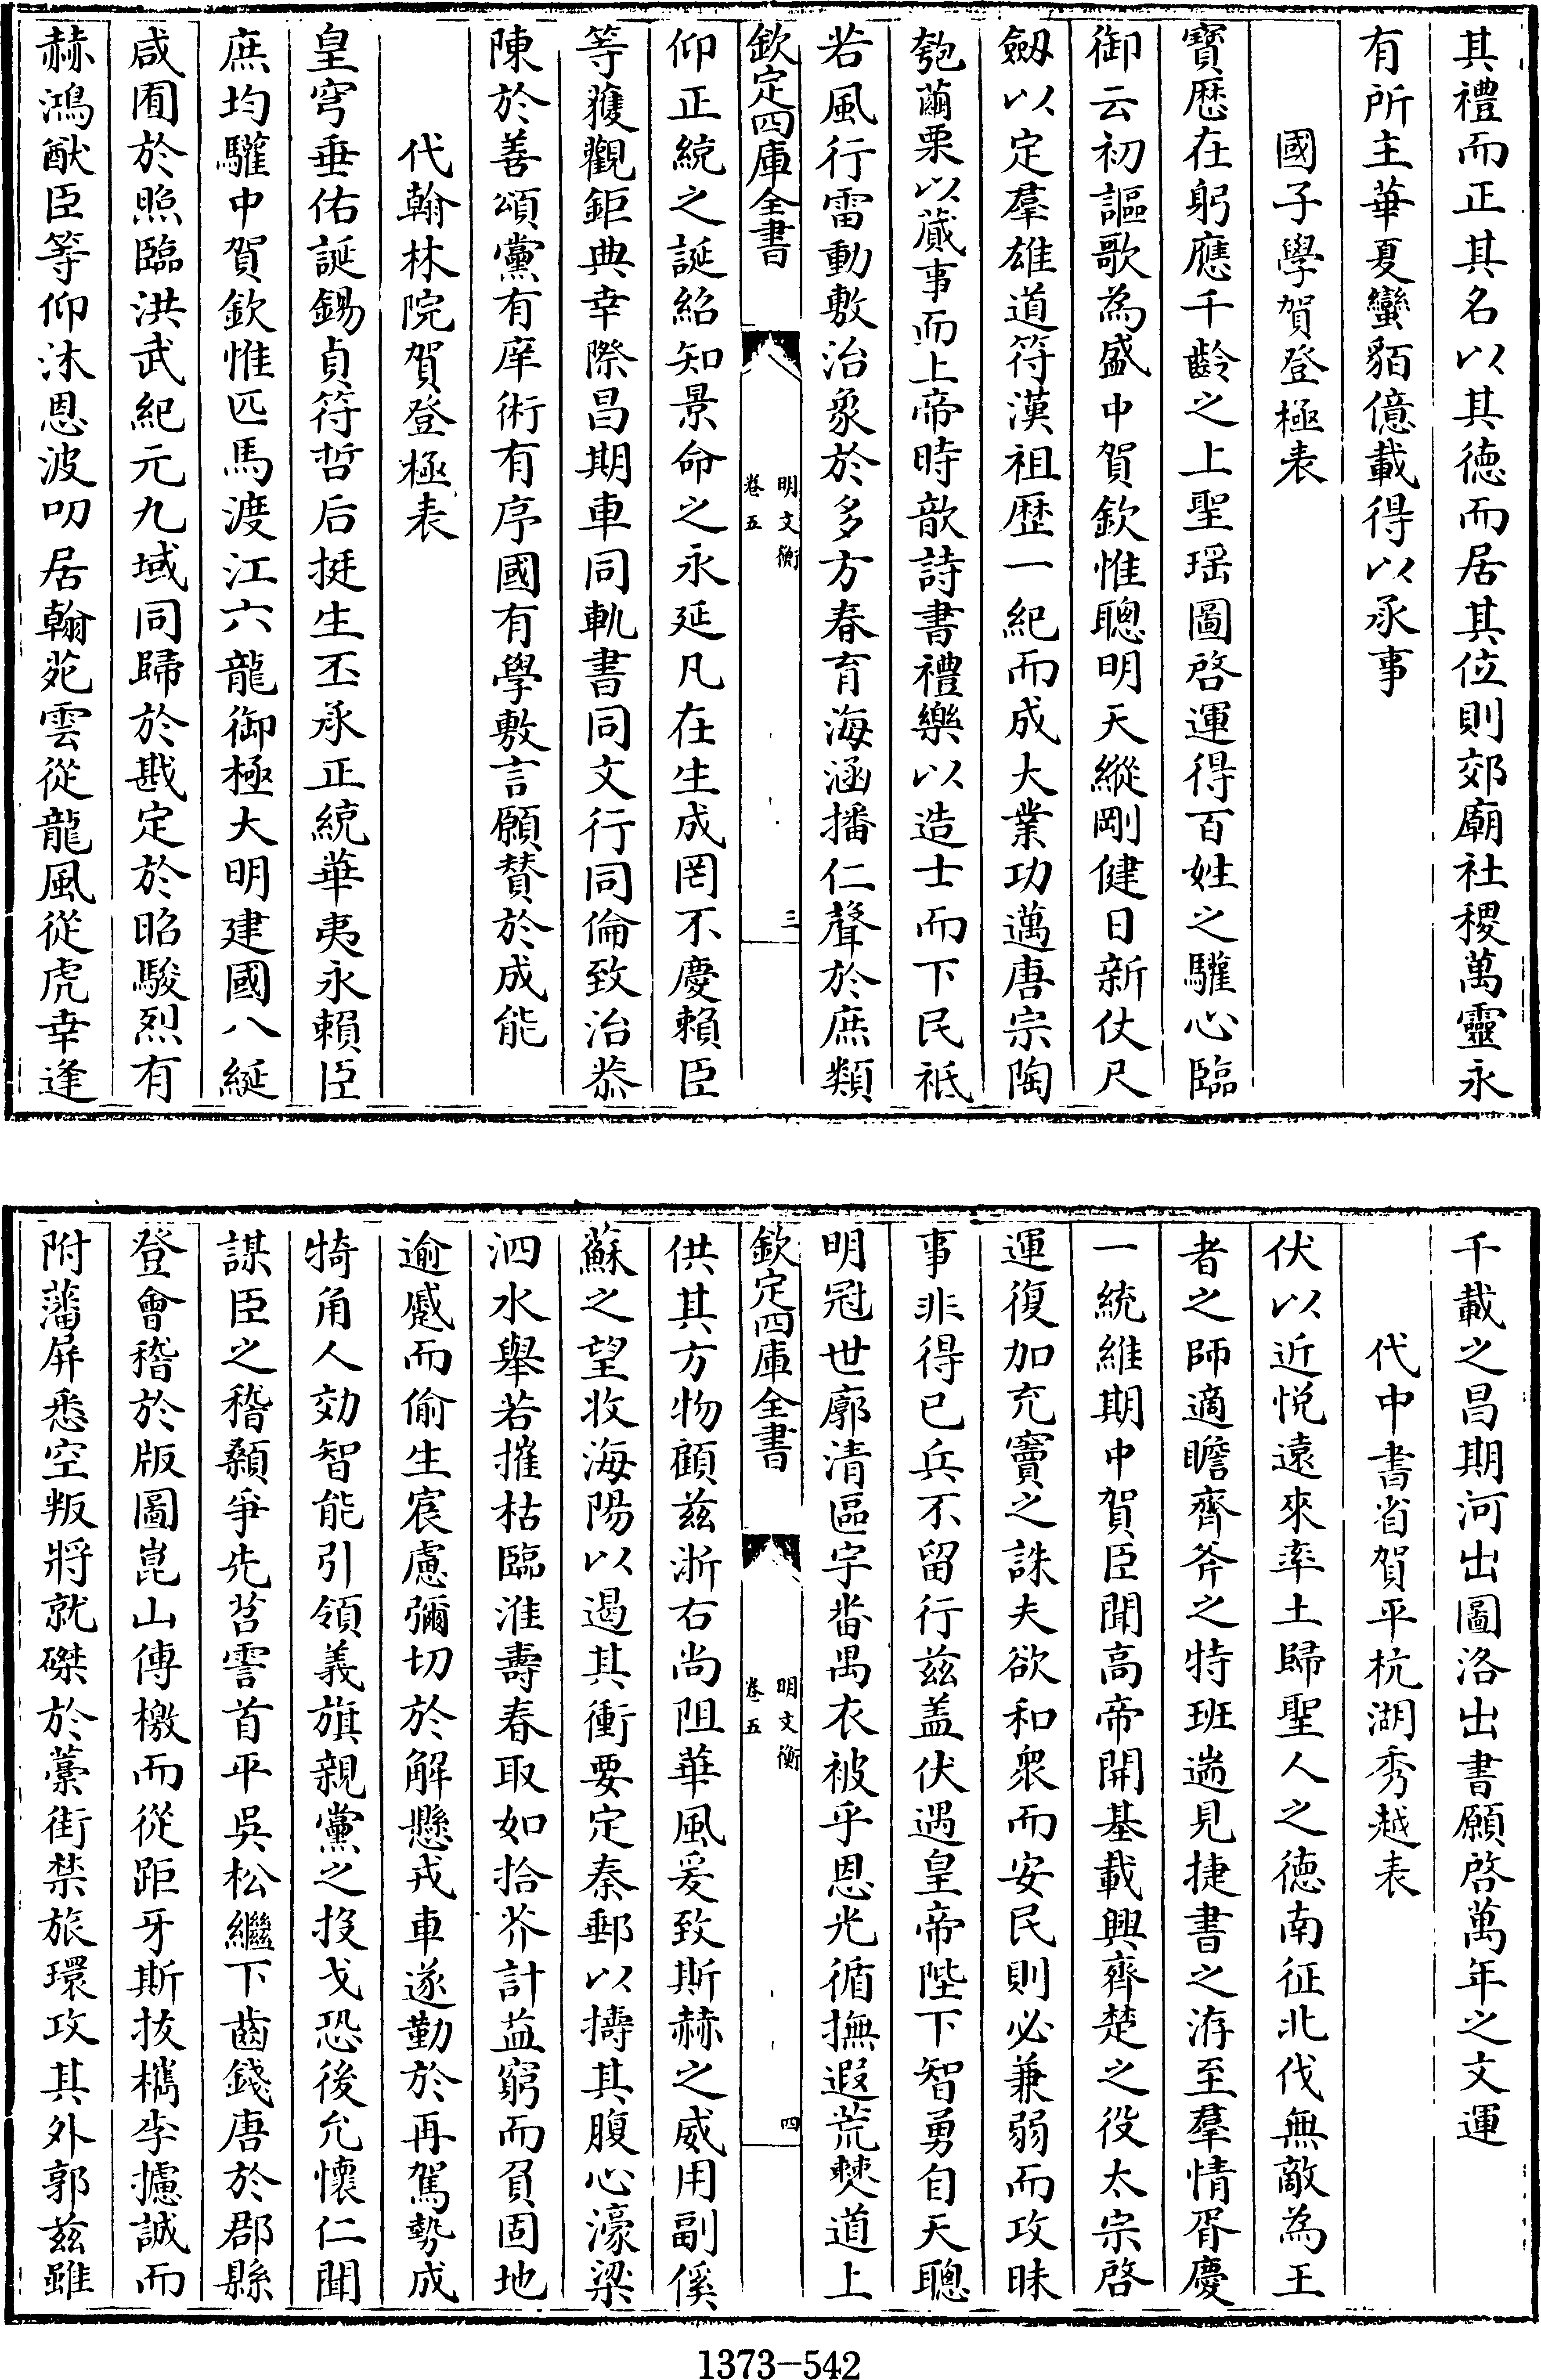 其禮而正其名以其徳而居其位則郊廟社稷萬靈永
有所主華夏蠻貊億載得以承事
國子學賀登極表
寶歴在躬應千齡之上聖瑶圖啓運得百姓之驩心臨
御云初謳歌為盛中賀欽惟聰明天縱剛健日新仗尺
劔以定羣雄道符漢祖歴一紀而成大業功邁唐宗陶
匏繭栗以蕆事而上帝時歆詩書禮樂以造士而下民祗
若風行雷動敷治象於多方春育海涵播仁聲於庶類
欽定四庫全書
明文衡
卷五
三
仰正統之誕紹知景命之永延凡在生成罔不慶賴臣
等獲觀鉅典幸際昌期車同軌書同文行同倫致治恭
陳於善頌黨有庠術有序國有學敷言願賛於成能
代翰林院賀登極表
皇穹垂佑誕錫貞符哲后挺生丕承正統華夷永賴臣
庶均驩中賀欽惟匹馬渡江六龍御極大明建國八綖
咸囿於照臨洪武紀元九域同歸於戡定於昭駿烈有
赫鴻猷臣等仰沐恩波叨居翰苑雲從龍風從虎幸逢
千載之昌期河出圖洛出書願啓萬年之文運
代中書省賀平杭湖秀越表
伏以近悦遠來率土歸聖人之徳南征北伐無敵為王
者之師適瞻齊斧之特班遄見捷書之洊至羣情胥慶
一統維期中賀臣聞高帝開基載興齊楚之役太宗啓
運復加充竇之誅夫欲和衆而安民則必兼弱而攻昧
事非得已兵不留行兹盖伏遇皇帝陛下智勇自天聰
明冠世廓清區宇畨禺衣被乎恩光循撫遐荒僰道上
欽定四庫全書
明文衡
卷五
四
供其方物顧兹浙右尚阻華風爰致斯赫之威用副徯
蘇之望收海陽以遏其衝要定秦郵以擣其腹心濠梁
泗水舉若摧枯臨淮壽春取如拾芥計益窮而負固地
逾蹙而偷生宸慮彌切於解懸戎車遂勤於再駕勢成
犄角人効智能引領義旗親黨之投戈恐後允懐仁聞
謀臣之稽顙爭先苕霅首平吳松繼下齒錢唐於郡縣
登會稽於版圖崑山傳檄而從距牙斯抜檇李攄誠而
附藩屏悉空叛將就磔於藁街禁旅環攻其外郭兹雖
1373-542